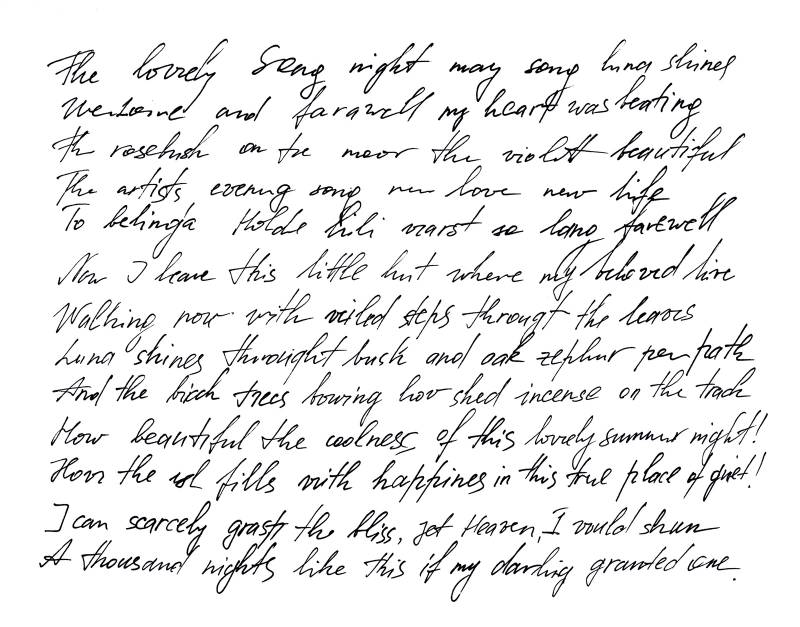 The lovely Song night may song luna shines
Welcome and farawell my heart was beating
Th rosebush on the moor the violett beautiful
The artists evening song new love new life
To belinda Holde Lili warst so long farewell
Now I leave this little hut where my beloved live
Walking now with veiled steps througt the leaves
Luna shines throught bush and oak zephur per path
And the birch trees bowing how shed incense on the track
How beautiful the coolness of this lovely summer night!
How the fills with happines in this true place of quiet!
I can scarcely grasp the bliss, jet Heaven, I would shun
A thousand nights like this if my darling granted one.